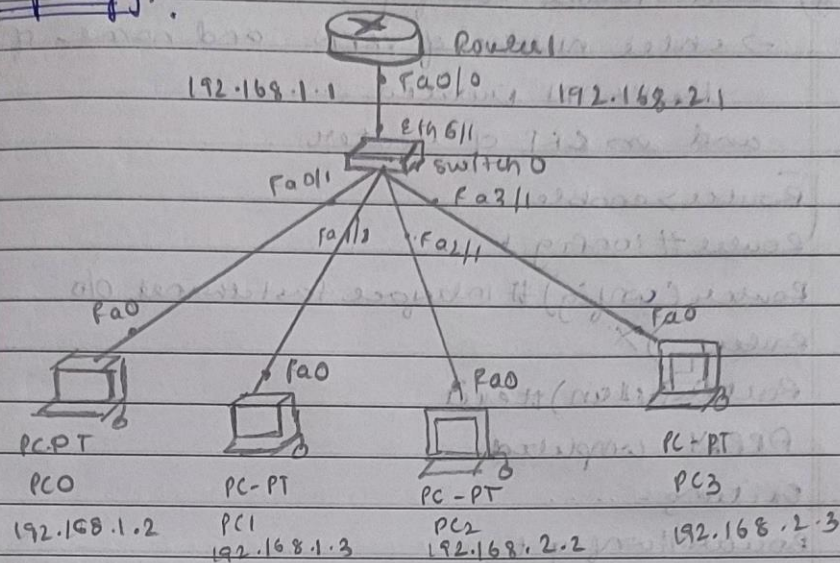 Router1
Fa0/0
192.168.1.1
192.168.2.1
Eth6/1
Switch0
Fa0/1
Fa3/1
Fa2/1
Fa0
Fa0
Fa0
Fa0
PC-PT
PC0
192.168.1.2
PC-PT
PC1
192.168.1.3
PC-PT
PC2
192.168.2.2
PC-PT
PC3
192.168.2.3